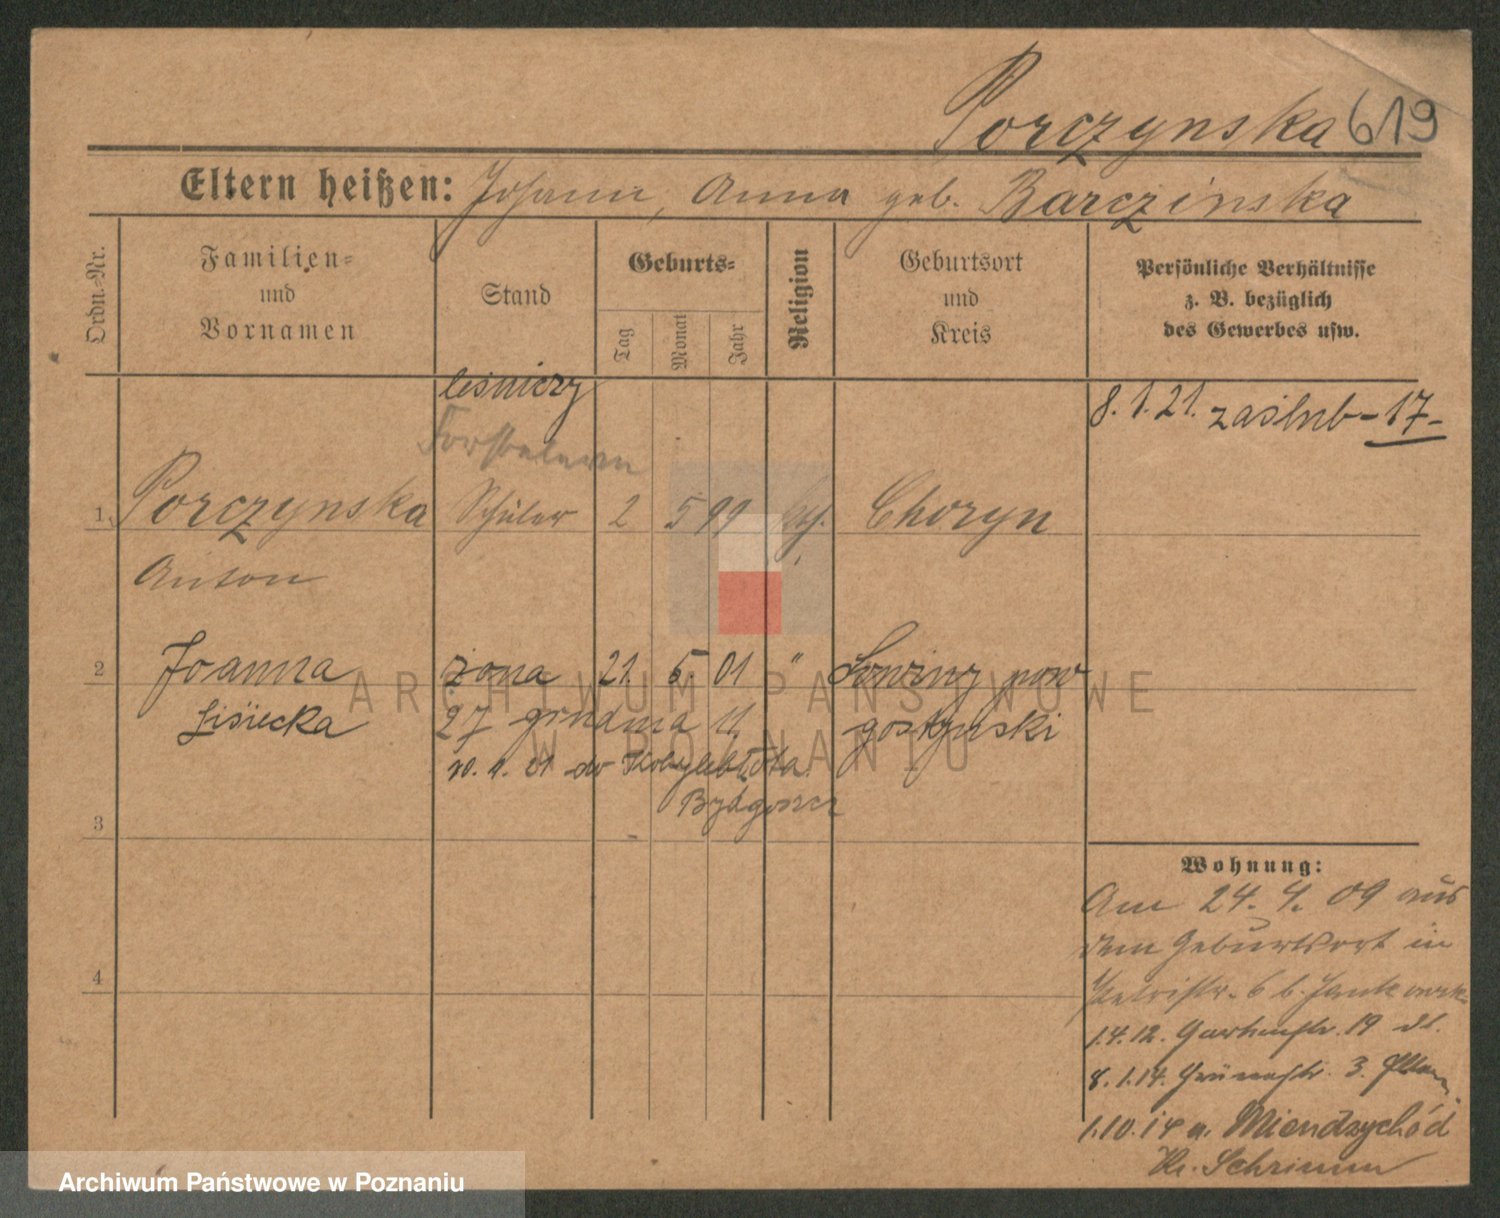 Porczynska 619
Eltern heißen: Johann, Anna geb. Barczinska
Ordn.-Nr.
Familien-
und
Vornamen
Stand
Geburts-
Tag
Monat
Jahr
Religion
Geburtsort
und
Kreis
Persönliche Verhältnisse
z. B. bezüglich
des Gewerbes usw.
leśniczy
8.1.21. zaślub -17-
1 Porczynska Schüler 2 5 99 kth. Choryn
Anton
2 Joanna żona 21. 5. 01 "
pow
Lisiecka 27 grudnia 11. gostynski
do
Bydgoszcz
3
4
Wohnung:
Am 24. 4. 09 aus
dem Geburtsort in
6 b.
1.4.12. Gartenstr. 19
8.1.14. 3.
1.10.14 n. Miendzychód
Kr. Schrimm
ARCHIWUM PAŃSTWOWE
W POZNANIU
Archiwum Państwowe w Poznaniu